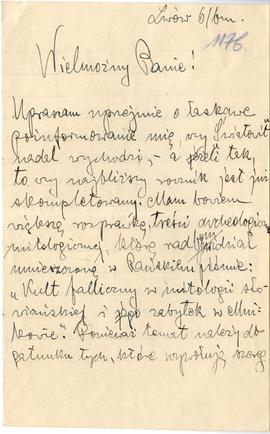 Lwów 6/bm.
1176
Wielmożny Panie!
Upraszam uprzejmie o łaskawe
poinformowanie mię, czy "Światowit"
nadal wychodzi, – a jeżeli tak,
to czy najbliższy rocznik jest już
skompletowany. Mam bowiem
większą rozprawkę, treści archeologiczno
mitologicznej, którą radbym widział
umieszczoną w Pańskiem piśmie:
"Kult falliczny w mitologii sło-
wiańskiej i jego zabytek w
kowie". Ponieważ temat należy do
gatunku tych, które wywołują szereg